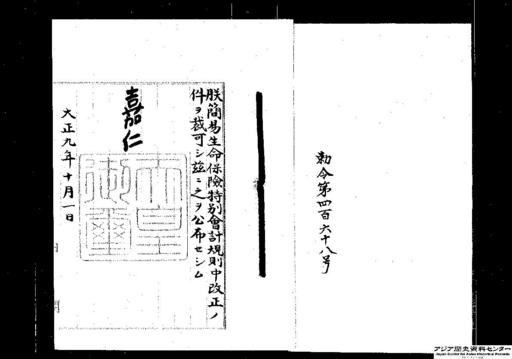 勅令第四百六十八号
朕簡易生命保險特別會計規則中改正ノ
件ヲ裁可シ茲ニ之ヲ公布セシム
嘉仁
天皇
御璽
大正九年十月一日
アジア歴史資料センター
Japan Center for Asian Historical Records